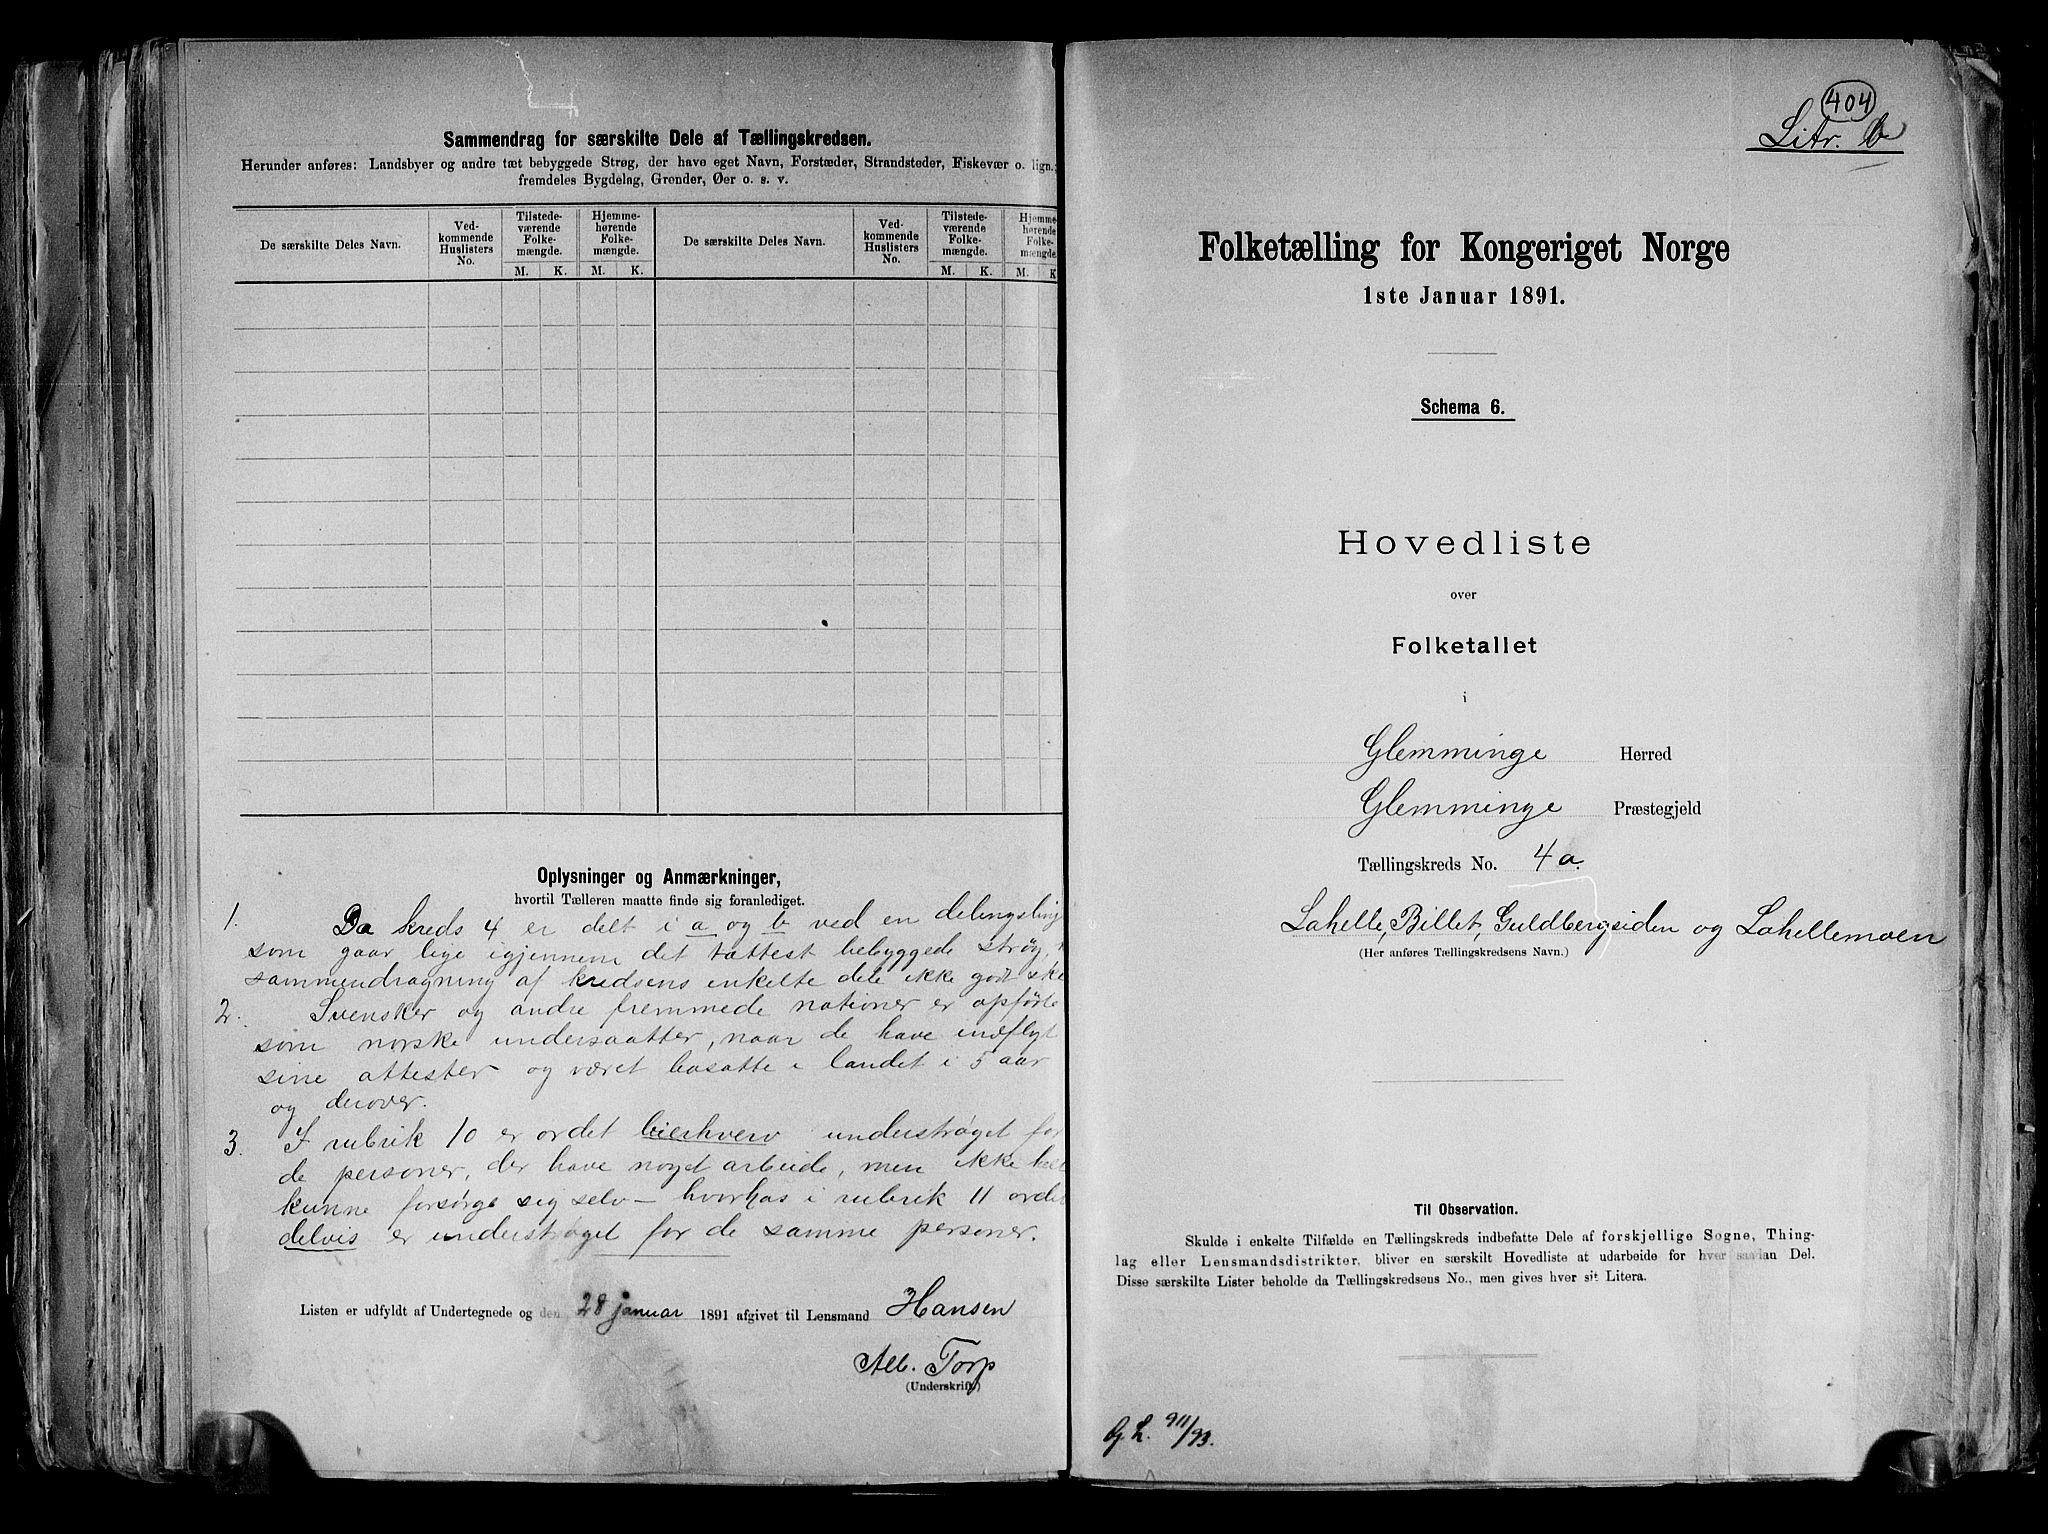 Sammendrag for særskilte Dele af Tællingskredsen.
Herunder anføres: Landsbyer og andre tæt bebyggede Strøg, der have eget Navn, Forstæder, Strandsteder, Fiskevær o. lign.;
fremdeles Bygdelag, Grender, Øer o. s. v.
De særskilte Deles Navn.
Ved-
kommende
Huslisters
No.
Tilstede-
værende
Folke-
mængde.
M. K.
Hjemme-
hørende
Folke-
mængde.
M. K.
De særskilte Deles Navn.
Ved-
kommende
Huslisters
No.
Tilstede-
værende
Folke-
mængde.
M. K.
Hjemme-
hørende
Folke-
mængde.
M. K.
Oplysninger og Anmærkninger,
hvortil Tælleren maatte finde sig foranlediget.
1. Da kreds 4 er delt i a og b ved en delingslinj
som gaar lige igjennem det tættest bebyggede strøg,
sammendragning af kredsens enkelte dele ikke godt ske
2. Svensker og andre fremmede nationer er opførte
som norske undersaatter, naar de have indflyt
sine attester og været bosatte i landet i 5 aar
og derover.
3. I rubrik 10 er ordet bierhverv understrøget for
de personer, der have noget arbeide, men ikke helt
kunne forsørge sig selv – hvorhos i rubrik 11 ordet
delvis er understrøget for de samme personer.
Listen er udfyldt af Undertegnede og den 28 januar 1891 afgivet til Lensmand Hansen
Alb. Torp
(Underskrift)
404
Litr. b
Folketælling for Kongeriget Norge
1ste Januar 1891.
Schema 6.
Hovedliste
over
Folketallet
i
Glemminge Herred
Glemminge Præstegjeld
Tællingskreds No. 4a.
Lahelle, Billet, Guldbergsiden og Lahellemoen
(Her anføres Tællingskredsens Navn.)
Til Observation.
Skulde i enkelte Tilfælde en Tællingskreds indbefatte Dele af forskjellige Sogne, Thing-
lag eller Lensmandsdistrikter, bliver en særskilt Hovedliste at udarbeide for hver saadan Del.
Disse særskilte Lister beholde da Tællingskredsens No., men gives hver sit Litera.
G. L. 911/93.